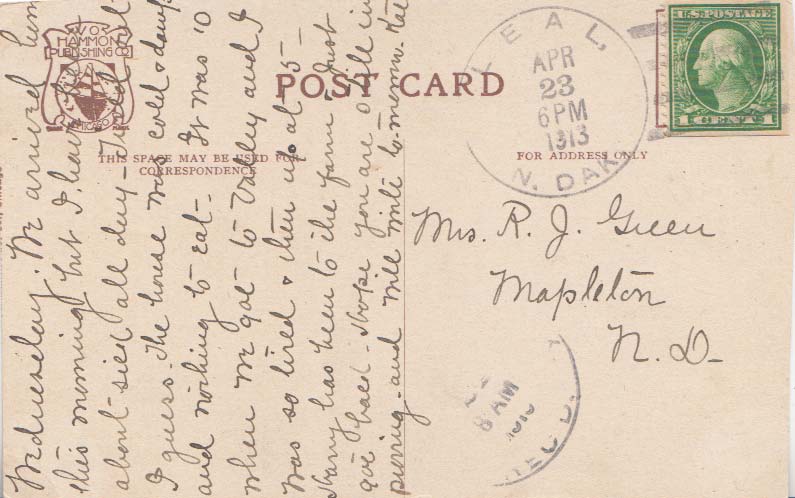 V.O.
HAMMON
PUBLISHING CO
CHICAGO
POST CARD
THIS SPACE MAY BE USED FOR
CORRESPONDENCE
FOR ADDRESS ONLY
LEAL,
APR
23
6 PM
1913
N. DAK.
U.S. POSTAGE
1 CENTS 1
Wednesday. We arrived hom
this morning but I have
about sied all day - Took cold
I guess. The house was cold & damp
and nothing to eat - It was 10
when we got to Valley and I
was so tired & then up at 5 -
Harry has been to the farm & just
got back - Hope you are still im
proving - and will write to-morrow. Kate
Mrs. R. J. Green
Mapleton
N. D -
8 AM
REC'D.